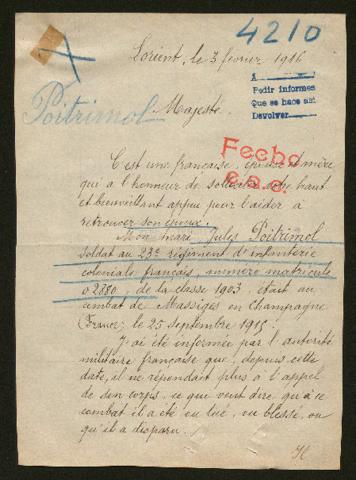 4210
Lorient, le 3 février 1916
A
Pedir informes
Que se hace asi
Devolver
Poitrimol
Majesté.
Fecho
C'est une française, épouse et mère
qui a l'honneur de solliciter votre haut
et bienveillant appui pour l'aider à
retrouver son époux.
Mon mari, Jules Poitrimol
soldat au 23e régiment d'infanterie
coloniale français, numéro matricule
02880, de la classe 1903, était au
combat de Massiges en Champagne
(France) le 25 Septembre 1915.
J'ai été informée par l'autorité
militaire française que, depuis cette
date, il ne répondait plus à l'appel
de son corps, ce qui veut dire qu'à ce
combat il a été ou tué, ou blessé, ou
qu'il a disparu.